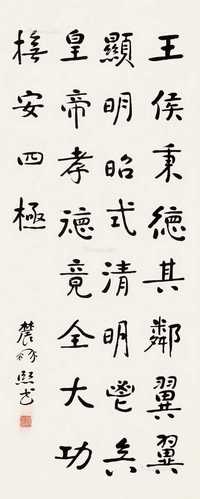 王侯秉德其鄰翼翼
顯明昭式清明鬯矣
皇帝孝德竟全大功
撫安四極
農髯熙